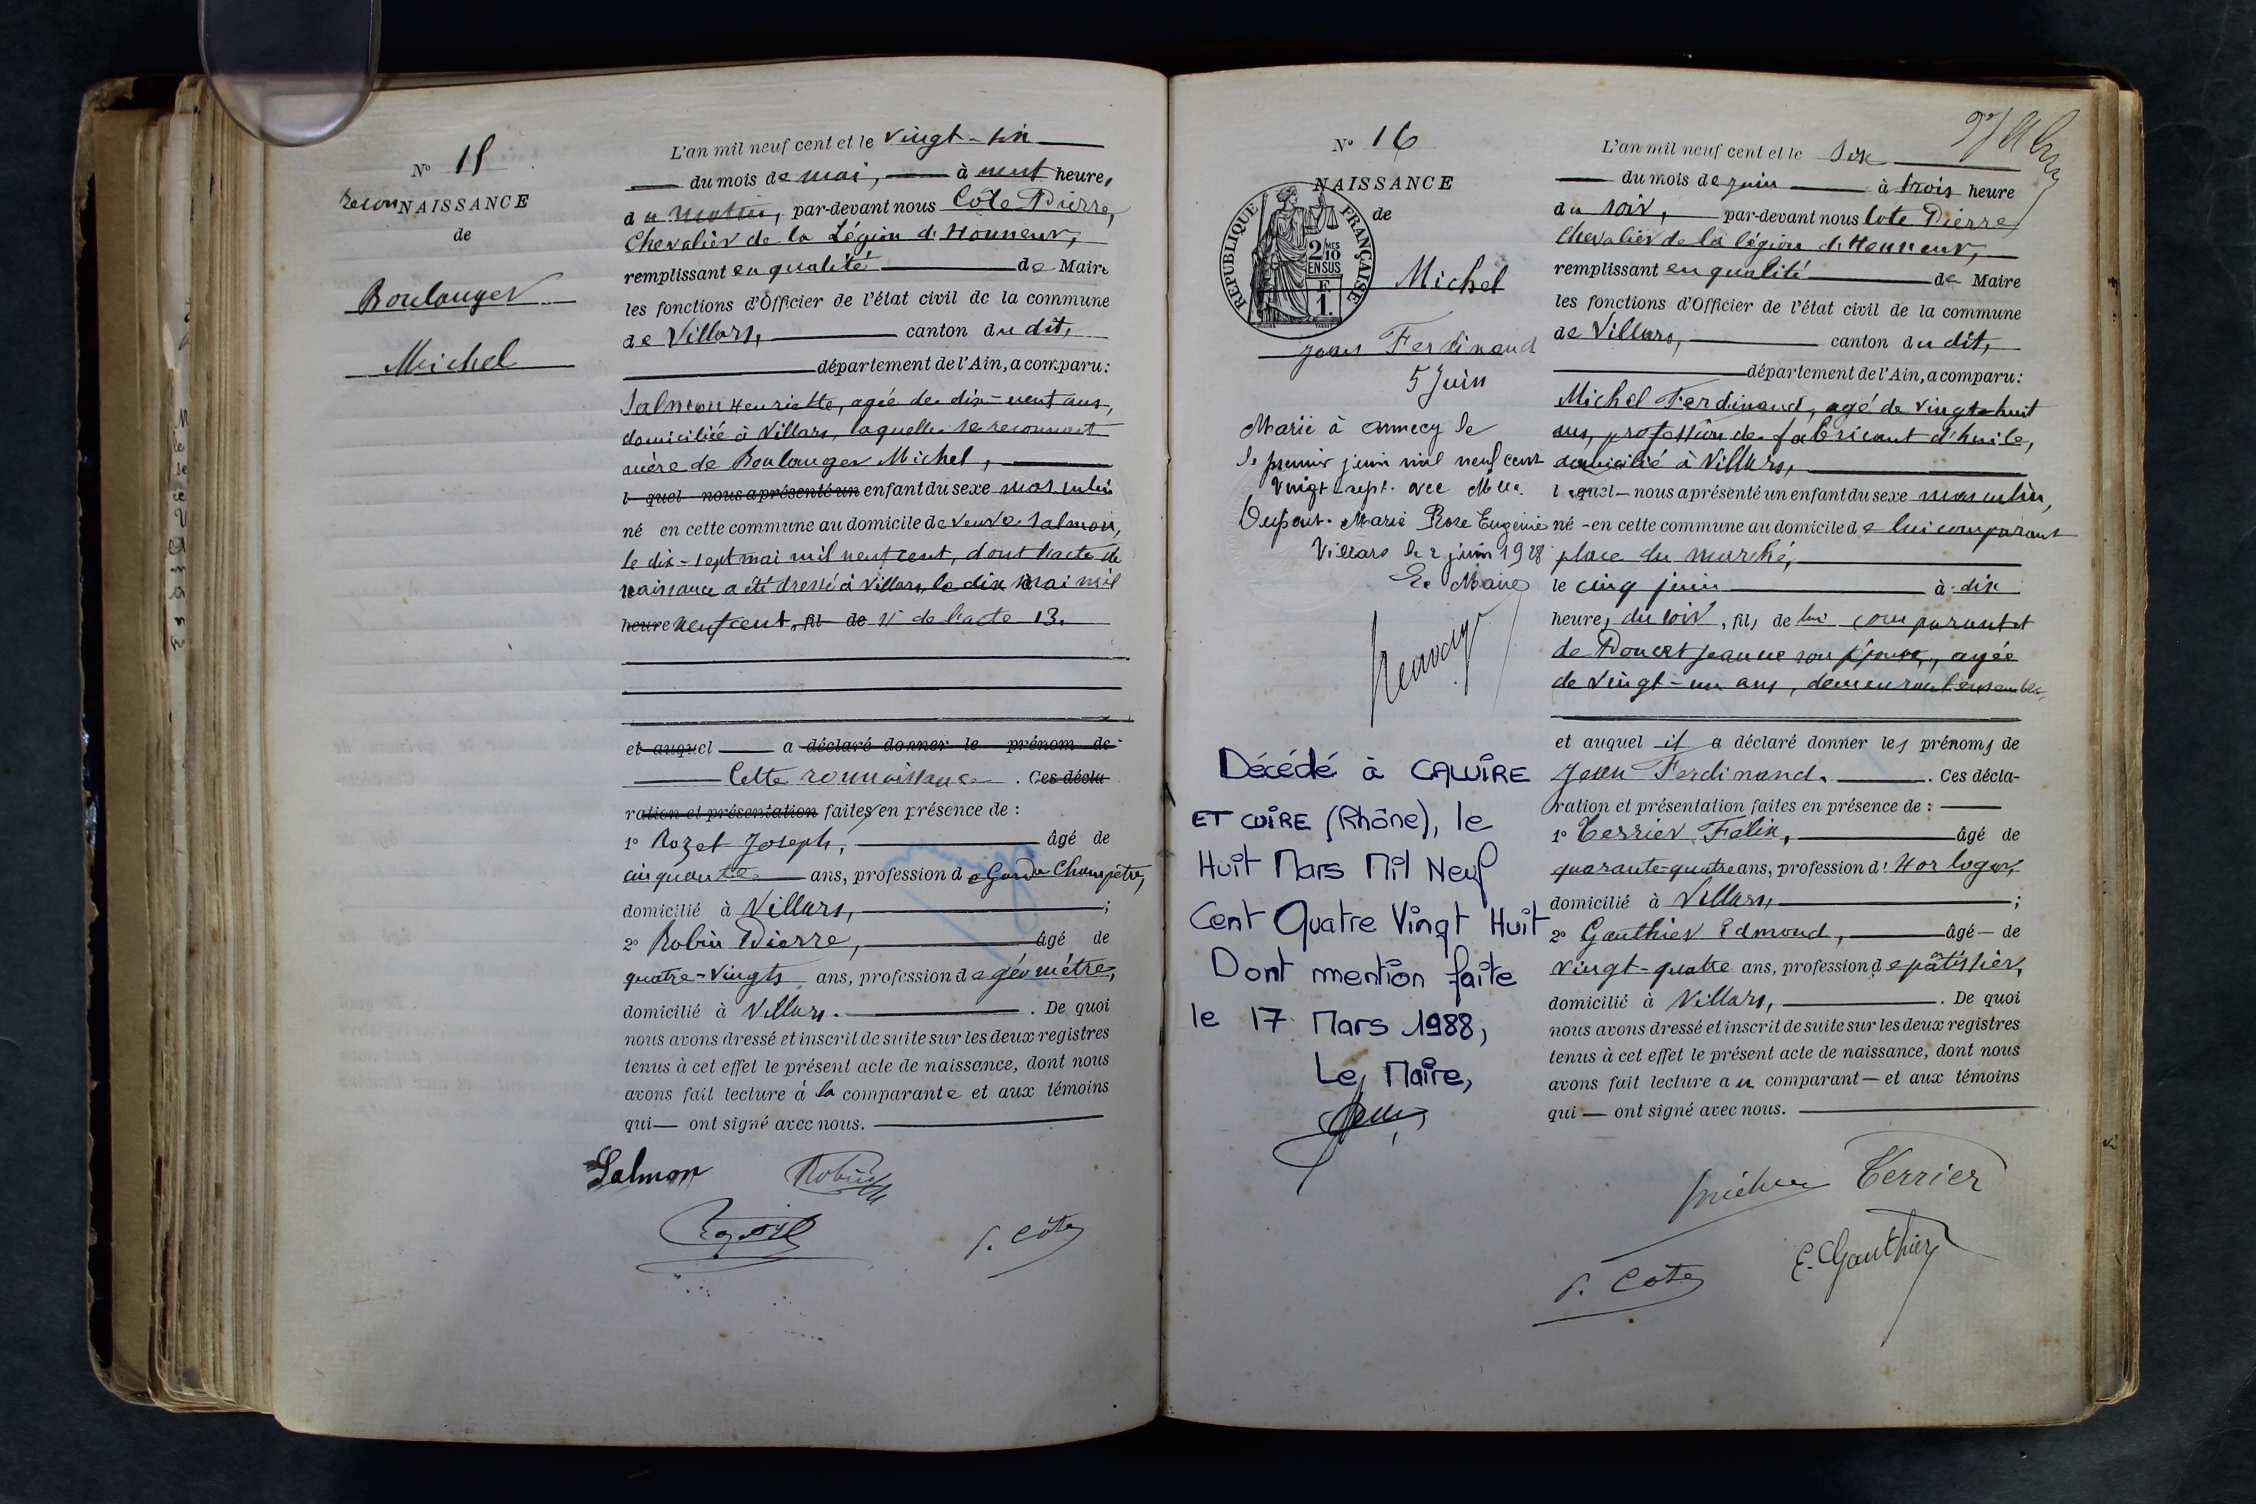 N° 15
reconNAISSANCE
de
Boulanger
Michel
L'an mil neuf cent et le vingt-six
du mois de mai, à neuf heures
du matin, par-devant nous Côte Pierre,
Chevalier de la Légion d'Honneur,
remplissant en qualité de Maire
les fonctions d'Officier de l'état civil de la commune
de Villars, canton du dit,
département de l'Ain, a comparu:
Salmon Henriette, agée de dix-neuf ans,
domiciliée à Villars, laquelle se reconnait
mère de Boulanger Michel,
l quel nous a présenté un enfant du sexe masculin
né en cette commune au domicile de veuve Salmon,
le dix-sept mai mil neuf cent, dont l'acte de
naissance a été dressé à Villars le dix mai mil
heure neuf cent, fil de N° de l'acte 13.
et auquel a déclaré donner le prénom de
Cette reconnaissance . Ces décla-
ration et présentation faites en présence de :
1° Rozet Joseph, âgé de
cinquante ans, profession de Garde Champêtre,
domicilié à Villars, ;
2° Robin Pierre, âgé de
quatre-vingts ans, profession de géomètre,
domicilié à Villars. . De quoi
nous avons dressé et inscrit de suite sur les deux registres
tenus à cet effet le présent acte de naissance, dont nous
avons fait lecture à la comparante et aux témoins
qui ont signé avec nous.
Salmon Robin
P. Côte
N° 16
NAISSANCE
de
REPUBLIQUE FRANÇAISE
2/10 MES
EN SUS
F.
1.
Michel
Jean Ferdinand
5 Juin
Marié à Annecy le
le premier juin mil neuf cent
vingt-sept avec Melle
Dupont Marie Rose Eugénie
Villars le 2 juin 1928
Le Maire
Décédé à CALUIRE
ET CUIRE (Rhône), le
Huit Mars Mil Neuf
Cent Quatre Vingt Huit
Dont mention faite
le 17 Mars 1988,
Le Maire,
L'an mil neuf cent et le six
du mois de juin à trois heure
du soir, par-devant nous Cote Pierre
Chevalier de la légion d'Honneur,
remplissant en qualité de Maire
les fonctions d'Officier de l'état civil de la commune
de Villars, canton du dit,
département de l'Ain, a comparu:
Michel Ferdinand, agé de vingt-huit
ans, profession de fabricant d'huile,
domicilié à Villars,
lequel nous a présenté un enfant du sexe masculin,
né en cette commune au domicile de lui comparant
place du marché,
le cinq juin à dix
heures du soir, fils de lui comparant et
de Doucet Jeanne son épouse, agée
de vingt-un ans, demeurant ensemble
et auquel il a déclaré donner les prénoms de
Jean Ferdinand. . Ces décla-
ration et présentation faites en présence de :
1° Terrier Félix, âgé de
quarante-quatre ans, profession d'Horloger,
domicilié à Villars, ;
2° Gauthier Edmond, âgé de
vingt-quatre ans, profession de pâtissier,
domicilié à Villars, . De quoi
nous avons dressé et inscrit de suite sur les deux registres
tenus à cet effet le présent acte de naissance, dont nous
avons fait lecture au comparant et aux témoins
qui ont signé avec nous.
Michel Terrier
P. Cote E. Gauthier